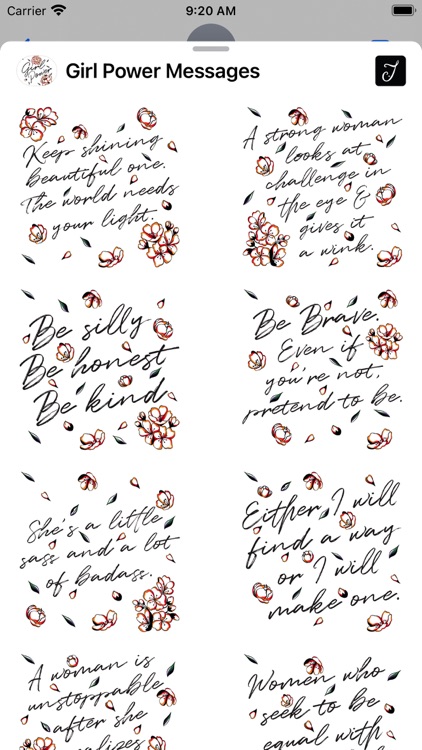 Carrier 9:20 AM
Girl Power Messages
Keep shining
beautiful one.
The world needs
your light.
A strong woman
looks at
challenge in
the eye &
gives it
a wink.
Be silly
Be honest
Be kind
Be Brave.
Even if
you're not,
pretend to be.
She's a little
sass and a lot
of badass.
Either I will
find a way
or I will
make one.
A woman is
unstoppable
after she
Women who
seek to be
equal with